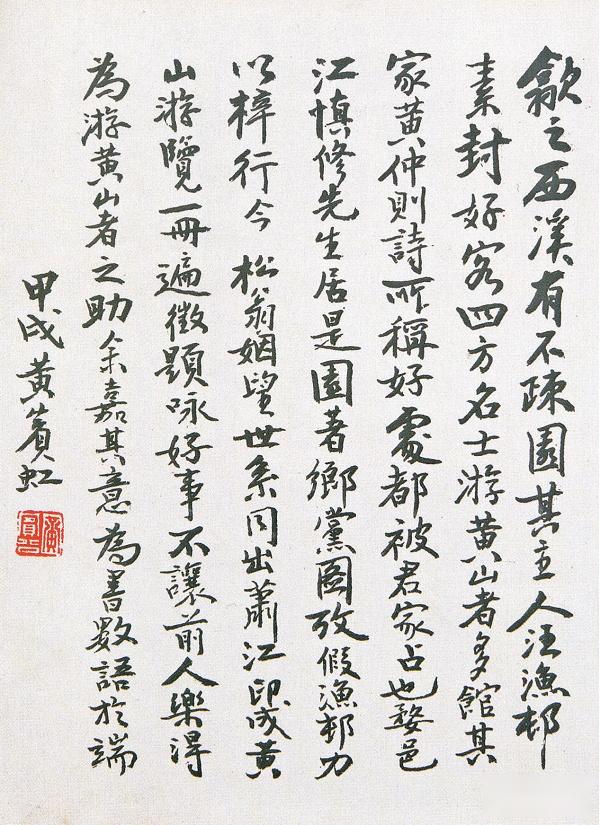 歙之西溪有不疎園其主人汪漁邨
素封好客四方名士游黄山者多館其
家黄仲則詩所稱好處都被君家占也婺邑
江慎修先生居是園著鄉黨圖攷假漁邨力
以梓行今松翁姻望世系同出蕭江印成黄
山游覽一冊遍徵題咏好事不讓前人樂得
為游黄山者之助余嘉其意為書數語於端
甲戌黄賓虹